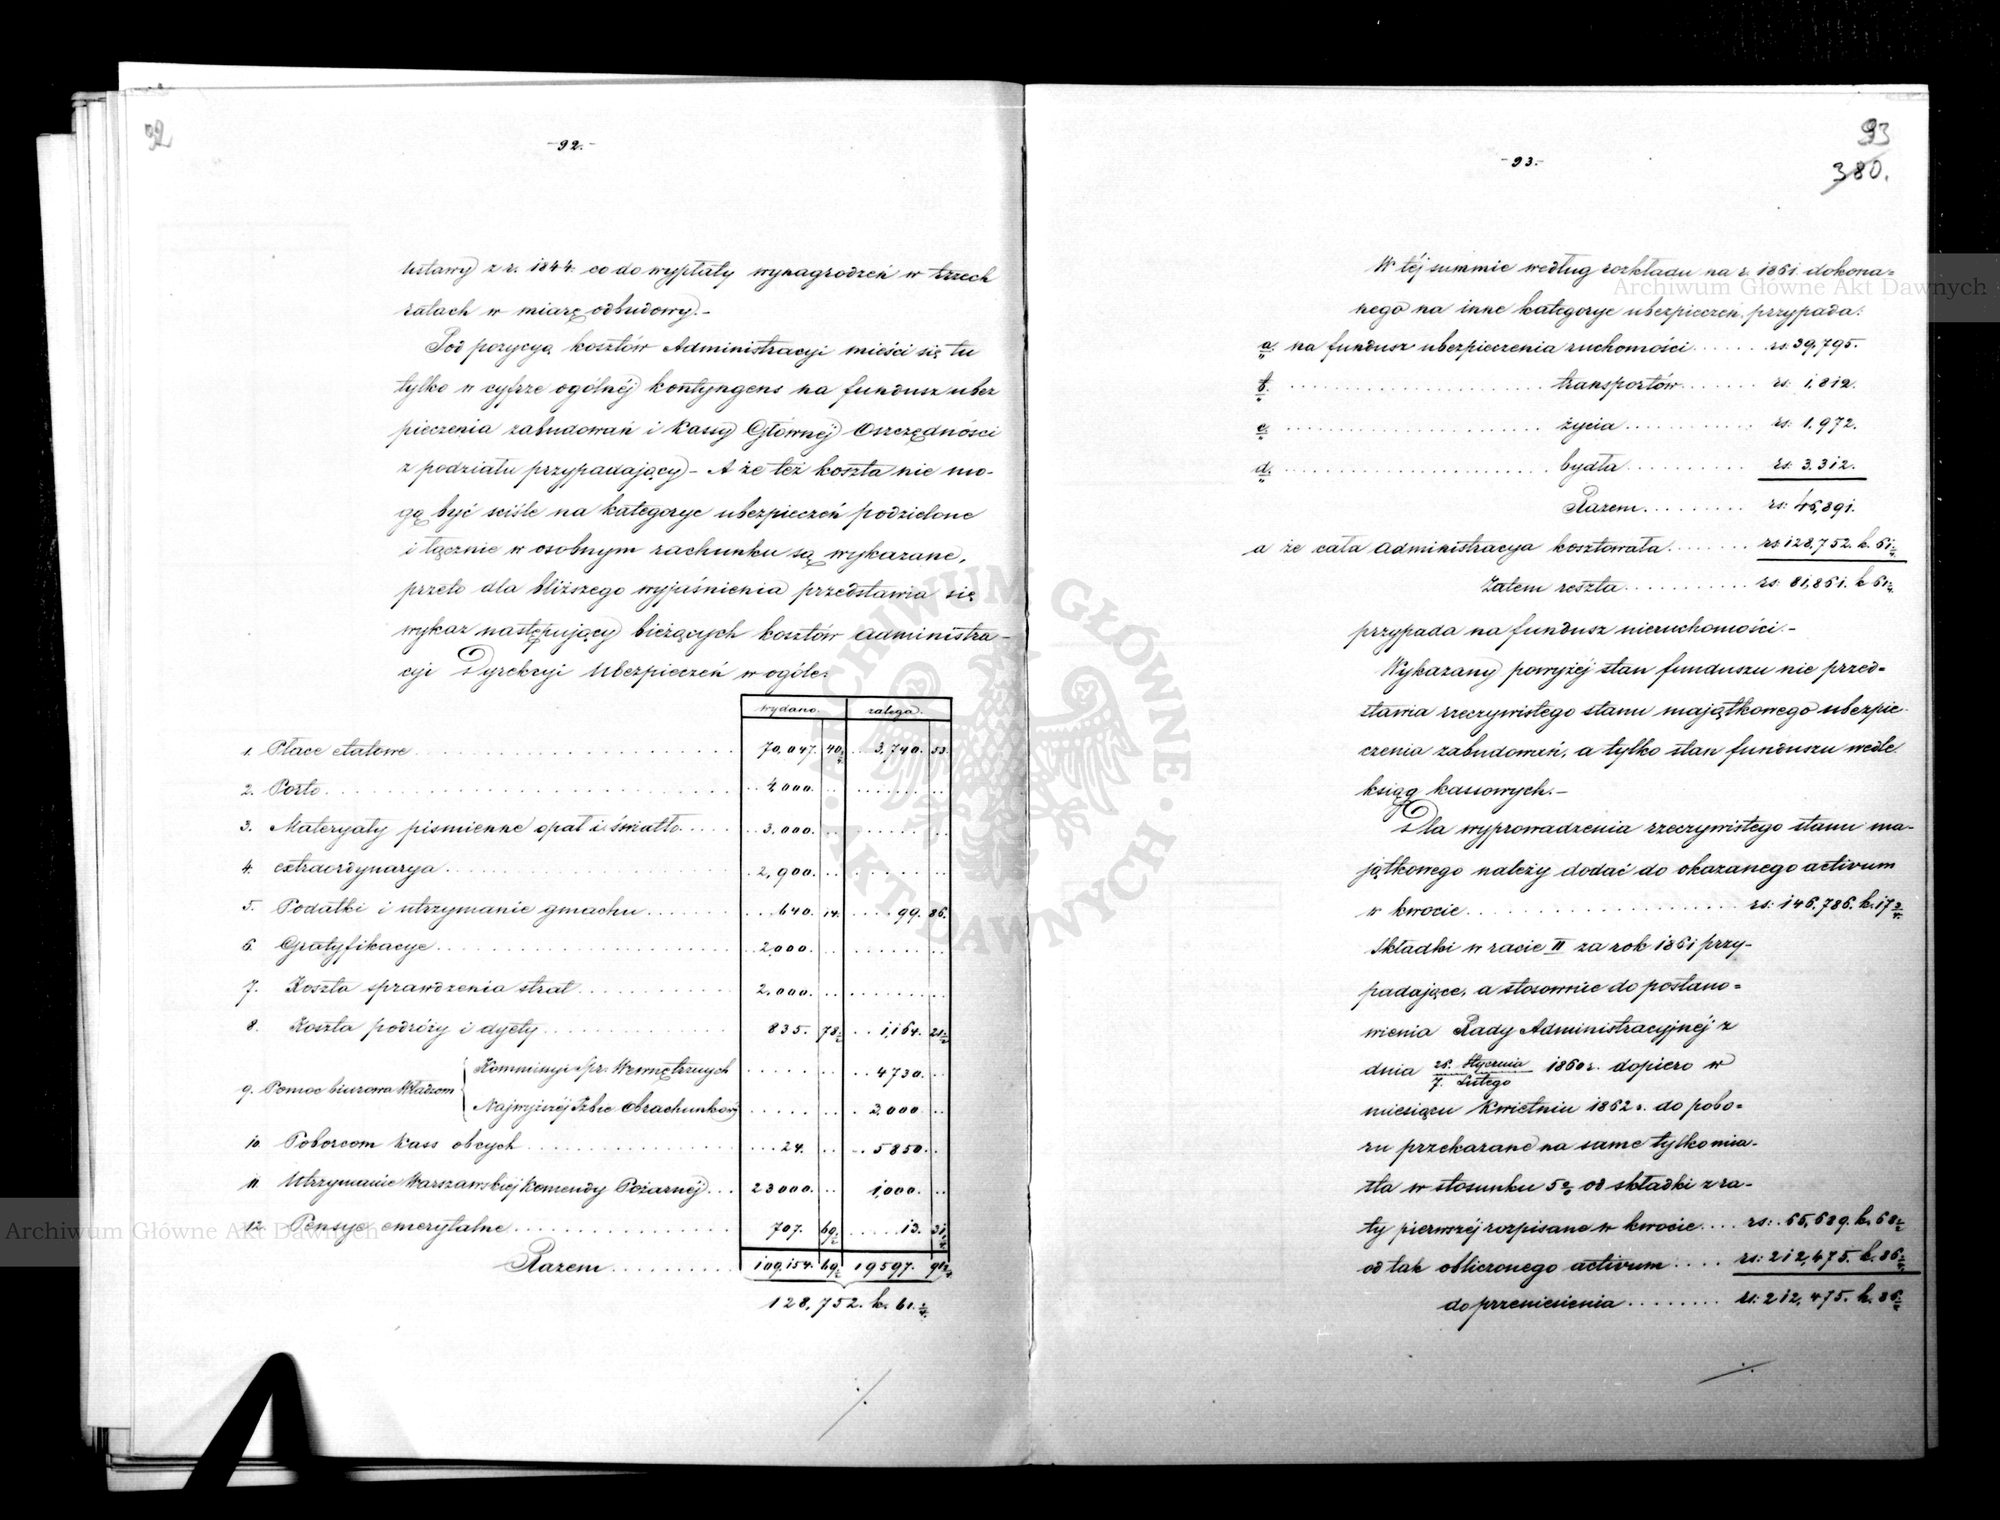 92
-92.-
Ustawy z r. 1844. co do wypłaty wynagrodzeń w trzech
ratach w miarę odbudowy.-
Pod pozycyą kosztów Administracyi mieści się tu
tylko w cyfrze ogólnéj kontyngens na fundusz ubez
pieczenia zabudowań i Kassy Głównéj Oszczędności
z podziału przypadający - A że też koszta nie mo-
gą być ściśle na kategorye ubezpieczeń podzielone
i łącznie w osobnym rachunku są wykazane,
przeto dla bliższego wyjaśnienia przedstawia się
wykaz następujący bieżących kosztów administra-
cyi Dyrekcyi Ubezpieczeń w ogóle:
wydano. zalega.
1. Płace etatowe 70,047. 40 3,740. 53.
2. Porto 4,000.
3. Materyały piśmienne opał i światło 3,000.
4. extraordynarya 2,900.
5. Podatki i utrzymanie gmachu 640. 14. 99. 86.
6. Gratyfikacye 2,000.
7. Koszta sprawdzenia strat 2,000.
8. Koszta podróży i dyety 835. 78 1,164. 21
9. Pomoc biurowa Władzom Kommissyi Spr. Wewnętrznych 4730.
Najwyższéj Izbie Obrachunkowéj 2,000.
10. Poborcom Kass obcych 24. 5850.
11. Utrzymanie Warszawskiéj Komendy Pożarnéj 23000. 1,000.
12. Pensye emerytalne 707. 69 13. 31
Razem 109,154. 69 19597. 91
128,752. k. 61.
93
380.
-93.-
W téj summie według rozkładu na r. 1861. dokona=
nego na inne kategorye ubezpieczeń przypada:
a. na fundusz ubezpieczenia ruchomości rs: 39,795.
b. transportów rs: 1,812.
c. życia rs: 1,972.
d. bydła rs: 3,312.
Razem rs: 46,891.
a że cała administracya kosztowała rs: 128,752. k. 61
Zatem reszta rs: 81,861. k 61
przypada na fundusz nieruchomości.-
Wykazany powyżéj stan funduszu nie przed=
stawia rzeczywistego stanu majątkowego ubezpie-
czenia zabudowań, a tylko stan funduszu wedle
ksiąg kassowych.-
Dla wyprowadzenia rzeczywistego stanu ma-
jątkowego należy dodać do okazanego activum
w kwocie rs: 146,786. k. 17
Składki w racie II za rok 1861 przy-
padające, a stosownie do postano=
wienia Rady Administracyjnéj z
dnia 26. Stycznia / 7. Lutego 1860 r. dopiero w
miesiącu Kwietniu 1862 r. do pobo=
ru przekazane na same tylko mia-
sta w stosunku 5% od składki z ra-
ty pierwszéj rozpisane w kwocie rs: 65,689. k. 68
od tak obliczonego activum rs: 212,475. k. 86
do przeniesienia rs: 212,475. k. 86
Archiwum Główne Akt Dawnych
Archiwum Główne Akt Dawnych
ARCHIWUM GŁÓWNE · AKT DAWNYCH ·